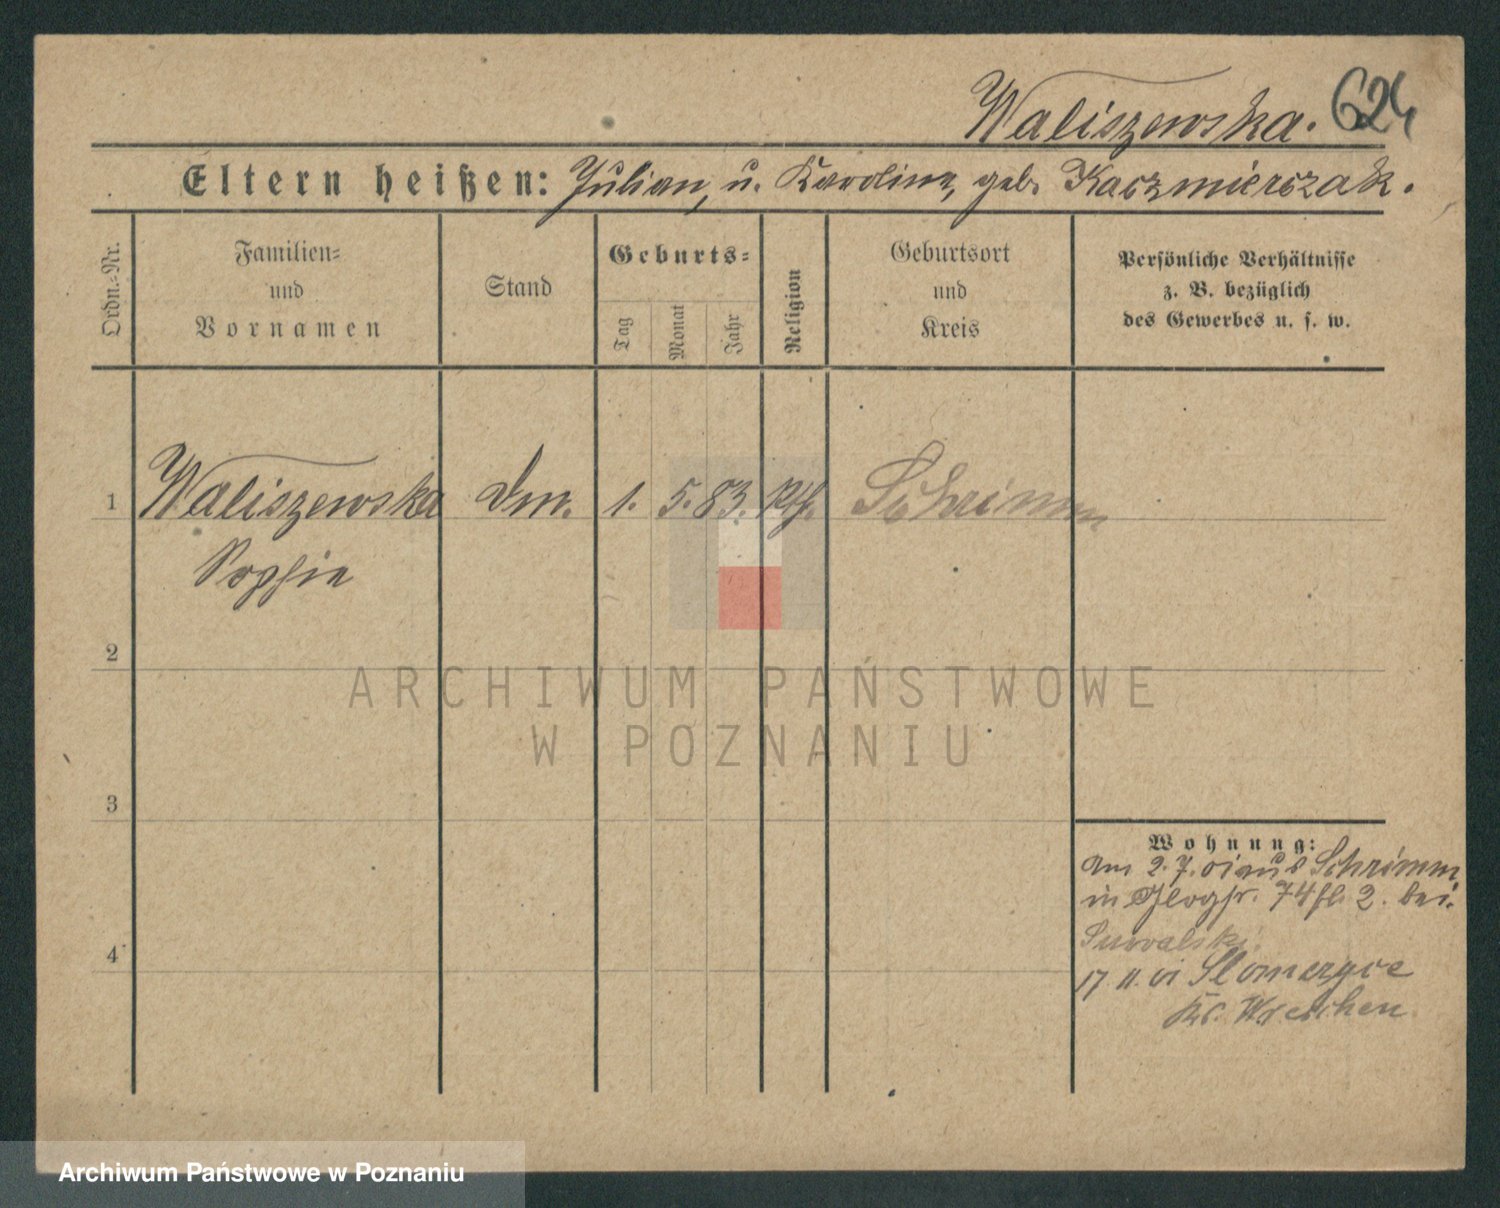 Waliszewska. 624
Eltern heißen: Julian, u. Karoline, geb. Kaczmierczak.
Ordn.=Nr.
Familien=
und
Vornamen
Stand
Geburts=
Tag
Monat
Jahr
Religion
Geburtsort
und
Kreis
Persönliche Verhältnisse
z. B. bezüglich
des Gewerbes u. s. w.
1 Waliszewska 1. 5. 83. Kth. Schrimm
Sophie
2
3
4
Wohnung:
Am 2. 7. 01 aus Schrimm
in 74 2. bei
Suwalski
17 11. 01
Kr. Wreschen
ARCHIWUM PAŃSTWOWE
W POZNANIU
Archiwum Państwowe w Poznaniu